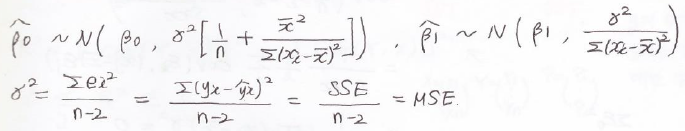 β̂0 ~ N( β0 , γ²[ 1/n + x̄²/Σ(xi-x̄)² ] ) , β̂1 ~ N ( β1 , γ²/Σ(xi-x̄)² )
γ² = Σei²/n-2 = Σ(yi-ŷi)²/n-2 = SSE/n-2 = MSE.